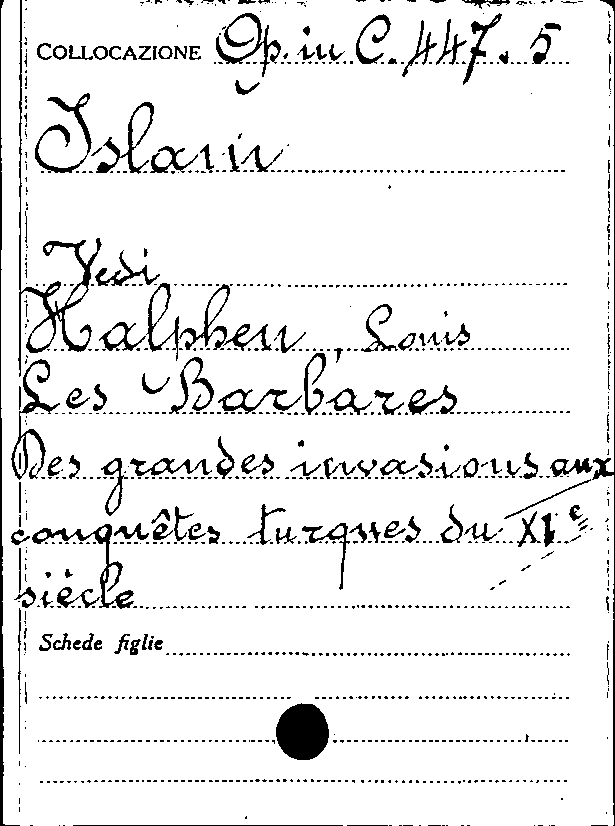 COLLOCAZIONE Op. in C. 447. 5
Islam
Vedi
Halphen, Louis
Les Barbares
Des grandes invasions aux
conquêtes turques du XIe
siècle
Schede figlie